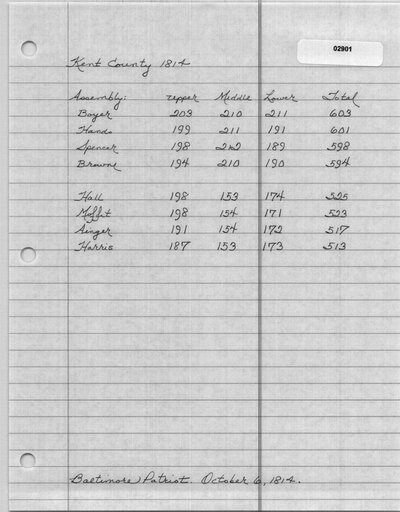 02901
Kent County 1814
Assembly: Upper Middle Lower Total
Boyer 203 210 211 603
Hands 199 211 191 601
Spencer 198 212 189 598
Browne 194 210 190 594
Hall 198 153 174 525
Moffit 198 154 171 523
191 154 172 517
Harris 187 153 173 513
Baltimore Patriot. October 6, 1814.